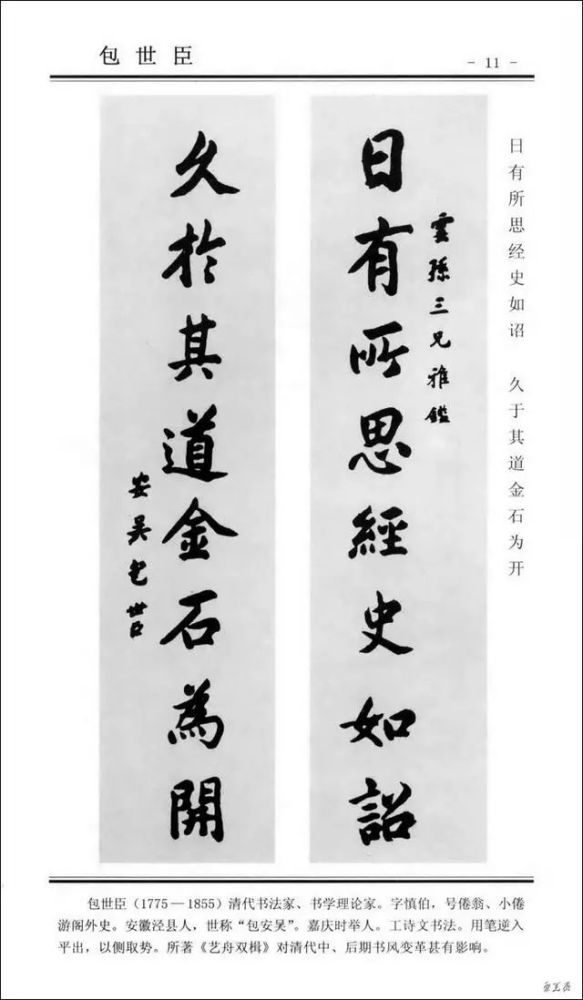 包世臣
- 11 -
日有所思经史如诏 久于其道金石为开
雲孫三兄雅鑑
日有所思經史如詔
久於其道金石為開
安吳包世臣
包世臣（1775—1855）清代书法家、书学理论家。字慎伯，号倦翁、小倦
游阁外史。安徽泾县人，世称“包安吴”。嘉庆时举人。工诗文书法。用笔逆入
平出，以侧取势。所著《艺舟双楫》对清代中、后期书风变革甚有影响。